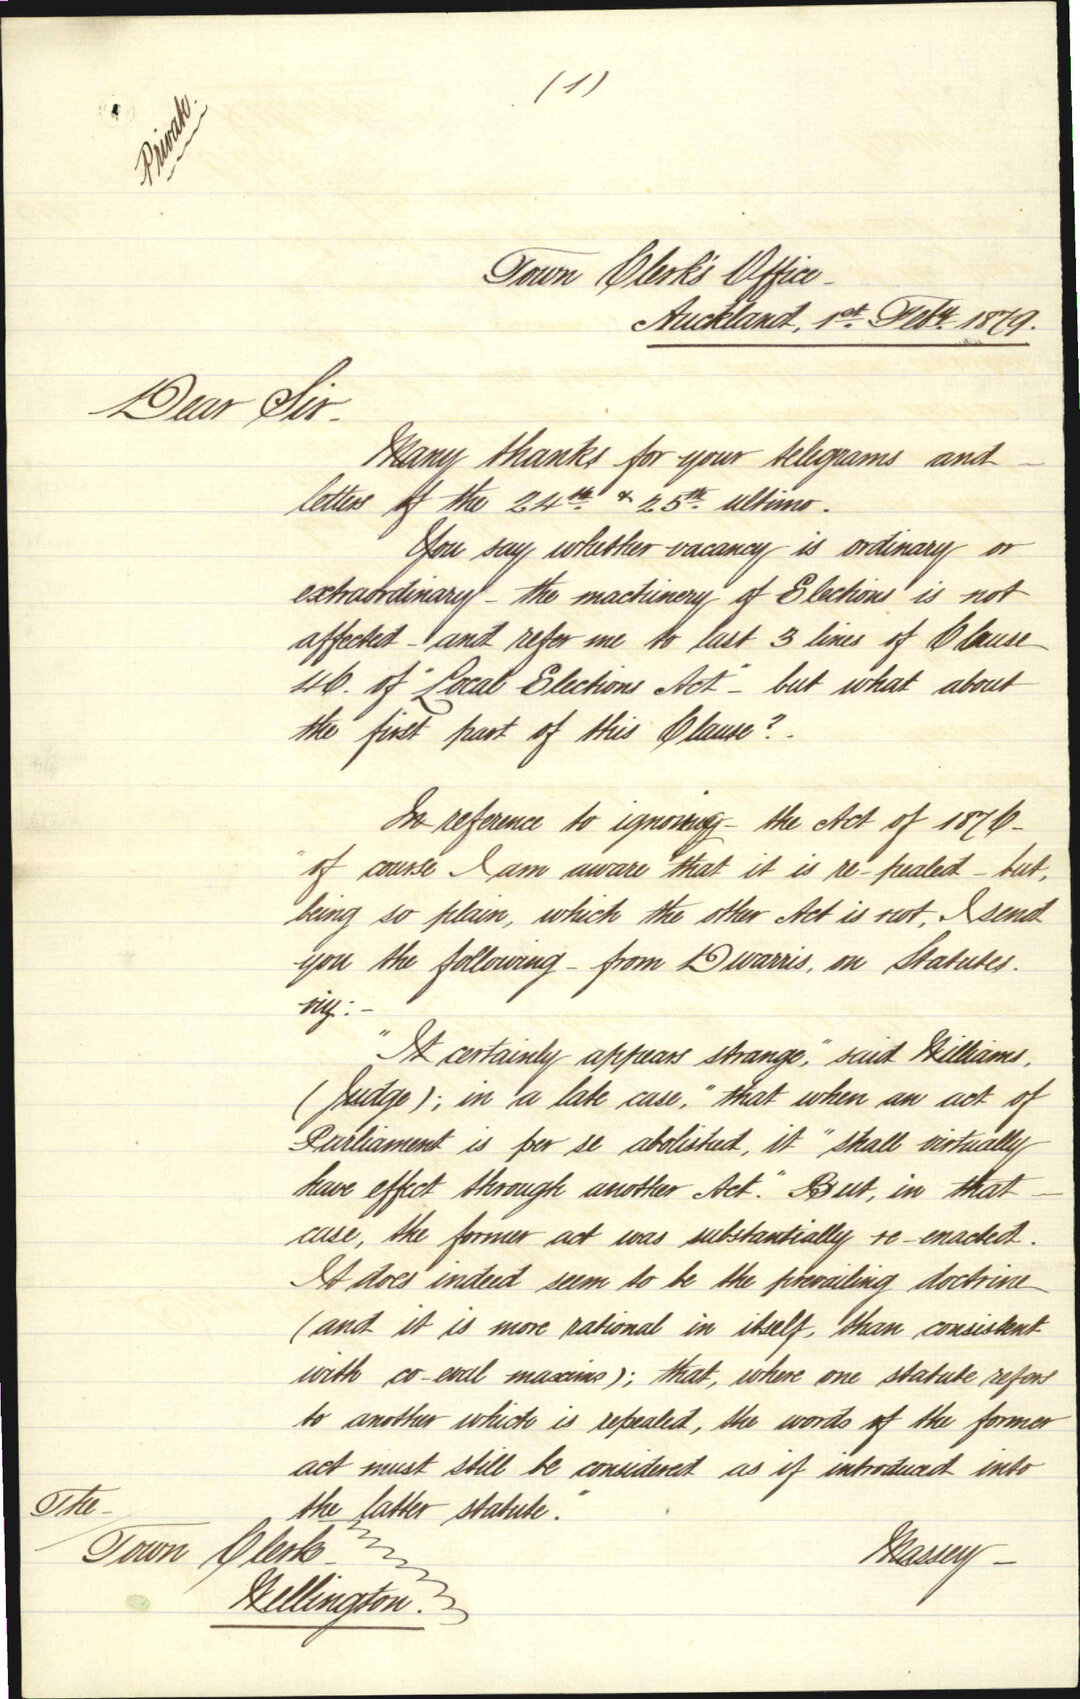 (1)
Private.
Town Clerk's Office -
Auckland, 1st. Feby. 1879.
Dear Sir -
Many thanks for your telegrams and -
letters of the 24th. & 25th. ultimo.
You say whether vacancy is ordinary or
extraordinary - the machinery of Elections is not
affected - and refer me to last 3 lines of Clause
46. of "Local Elections Act" - but what about
the first part of this Clause? -
In reference to ignoring - the Act of 1876 -
"of course I am aware that it is re-pealed - but,
being so plain, which the other Act is not, I send
you the following - from Dwarris, on Statutes.
viz: -
"It certainly appears strange," said Williams,
(Judge); in a late case, "that when an act of
Parliament is per se abolished, it "shall virtually
have effect through another Act." But, in that -
case, the former act was substantially re-enacted.
It does indeed seem to be the prevailing doctrine
(and it is more rational in itself, than consistent
with co-eval maxims); that, where one statute refers
to another which is repealed, the words of the former
act must still be considered as if introduced into
the latter statute."
The -
Town Clerk -
Wellington.
Massey -